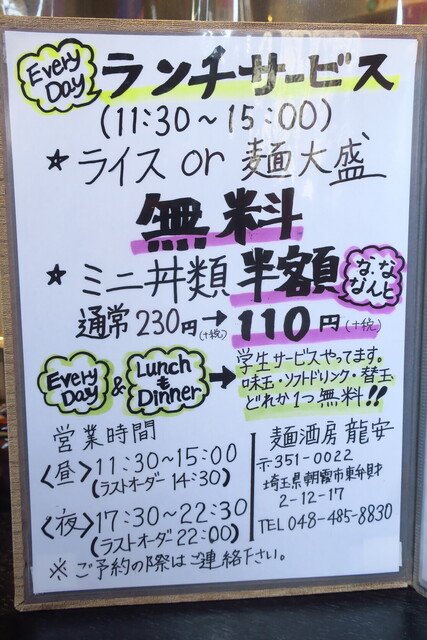 Every Day ランチサービス
(11:30～15:00)
★ライス or 麺大盛
無料
★ミニ丼類半額 な、な なんと
通常230円(+税)→110円(+税)
Every Day & Lunch も Dinner → 学生サービスやってます。
味玉・ソフトドリンク・替玉
どれか1つ無料!!
営業時間
<昼>11:30～15:00
(ラストオーダー14:30)
<夜>17:30～22:30
(ラストオーダー22:00)
※ご予約の際はご連絡下さい。
麺酒房 龍安
〒351-0022
埼玉県朝霞市東弁財
2-12-17
TEL 048-485-8830